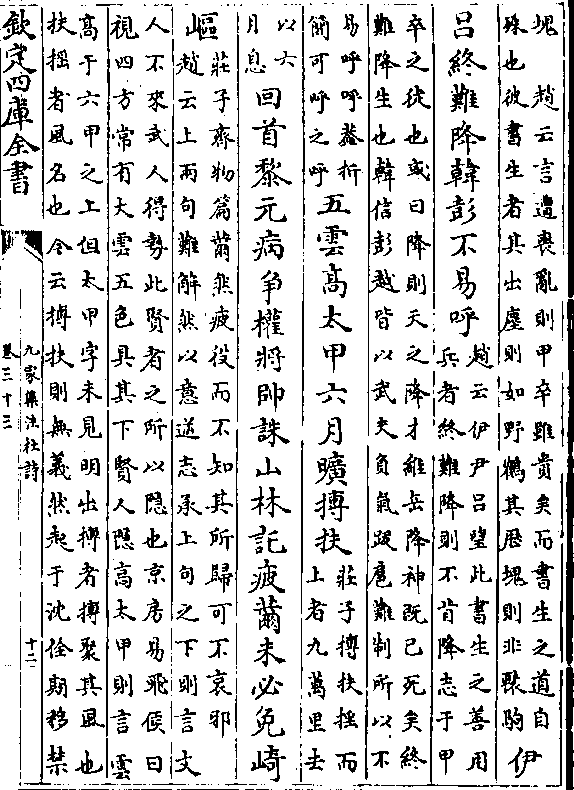 塊趙云言遭喪亂則甲卒雖貴矣而書生之道自
殊也彼書生者其出塵則如野鶴其歷塊則非轅駒
伊
呂終難降韓彭不易呼
趙云伊尹呂望此書生之善用
兵者終難降則不肯降志于甲
卒之徒也或曰降則天之降才維岳降神既已死矣終
難降生也韓信彭越皆以武夫負氣跋扈難制所以不
易呼呼蓋折
簡可呼之呼
五雲高太甲六月曠摶扶
莊子摶扶揺而
上者九萬里去
以六
月息
回首黎元病爭權將帥誅山林託疲薾未必免崎
嶇
莊子齊物篇薾然疲役而不知其所歸可不哀邪
趙云上兩句難解然以意逆志承上句之下則言文
人不來武人得勢此賢者之所以隱也京房易飛候曰
視四方常有大雲五色具其下賢人隱高太甲則言雲
高于六甲之上但太甲字未見明出摶者摶聚其風也
扶揺者風名也今云摶扶則無義然起于沈佺期移禁
欽定四庫全書
九家集注杜詩
卷三十三
十二